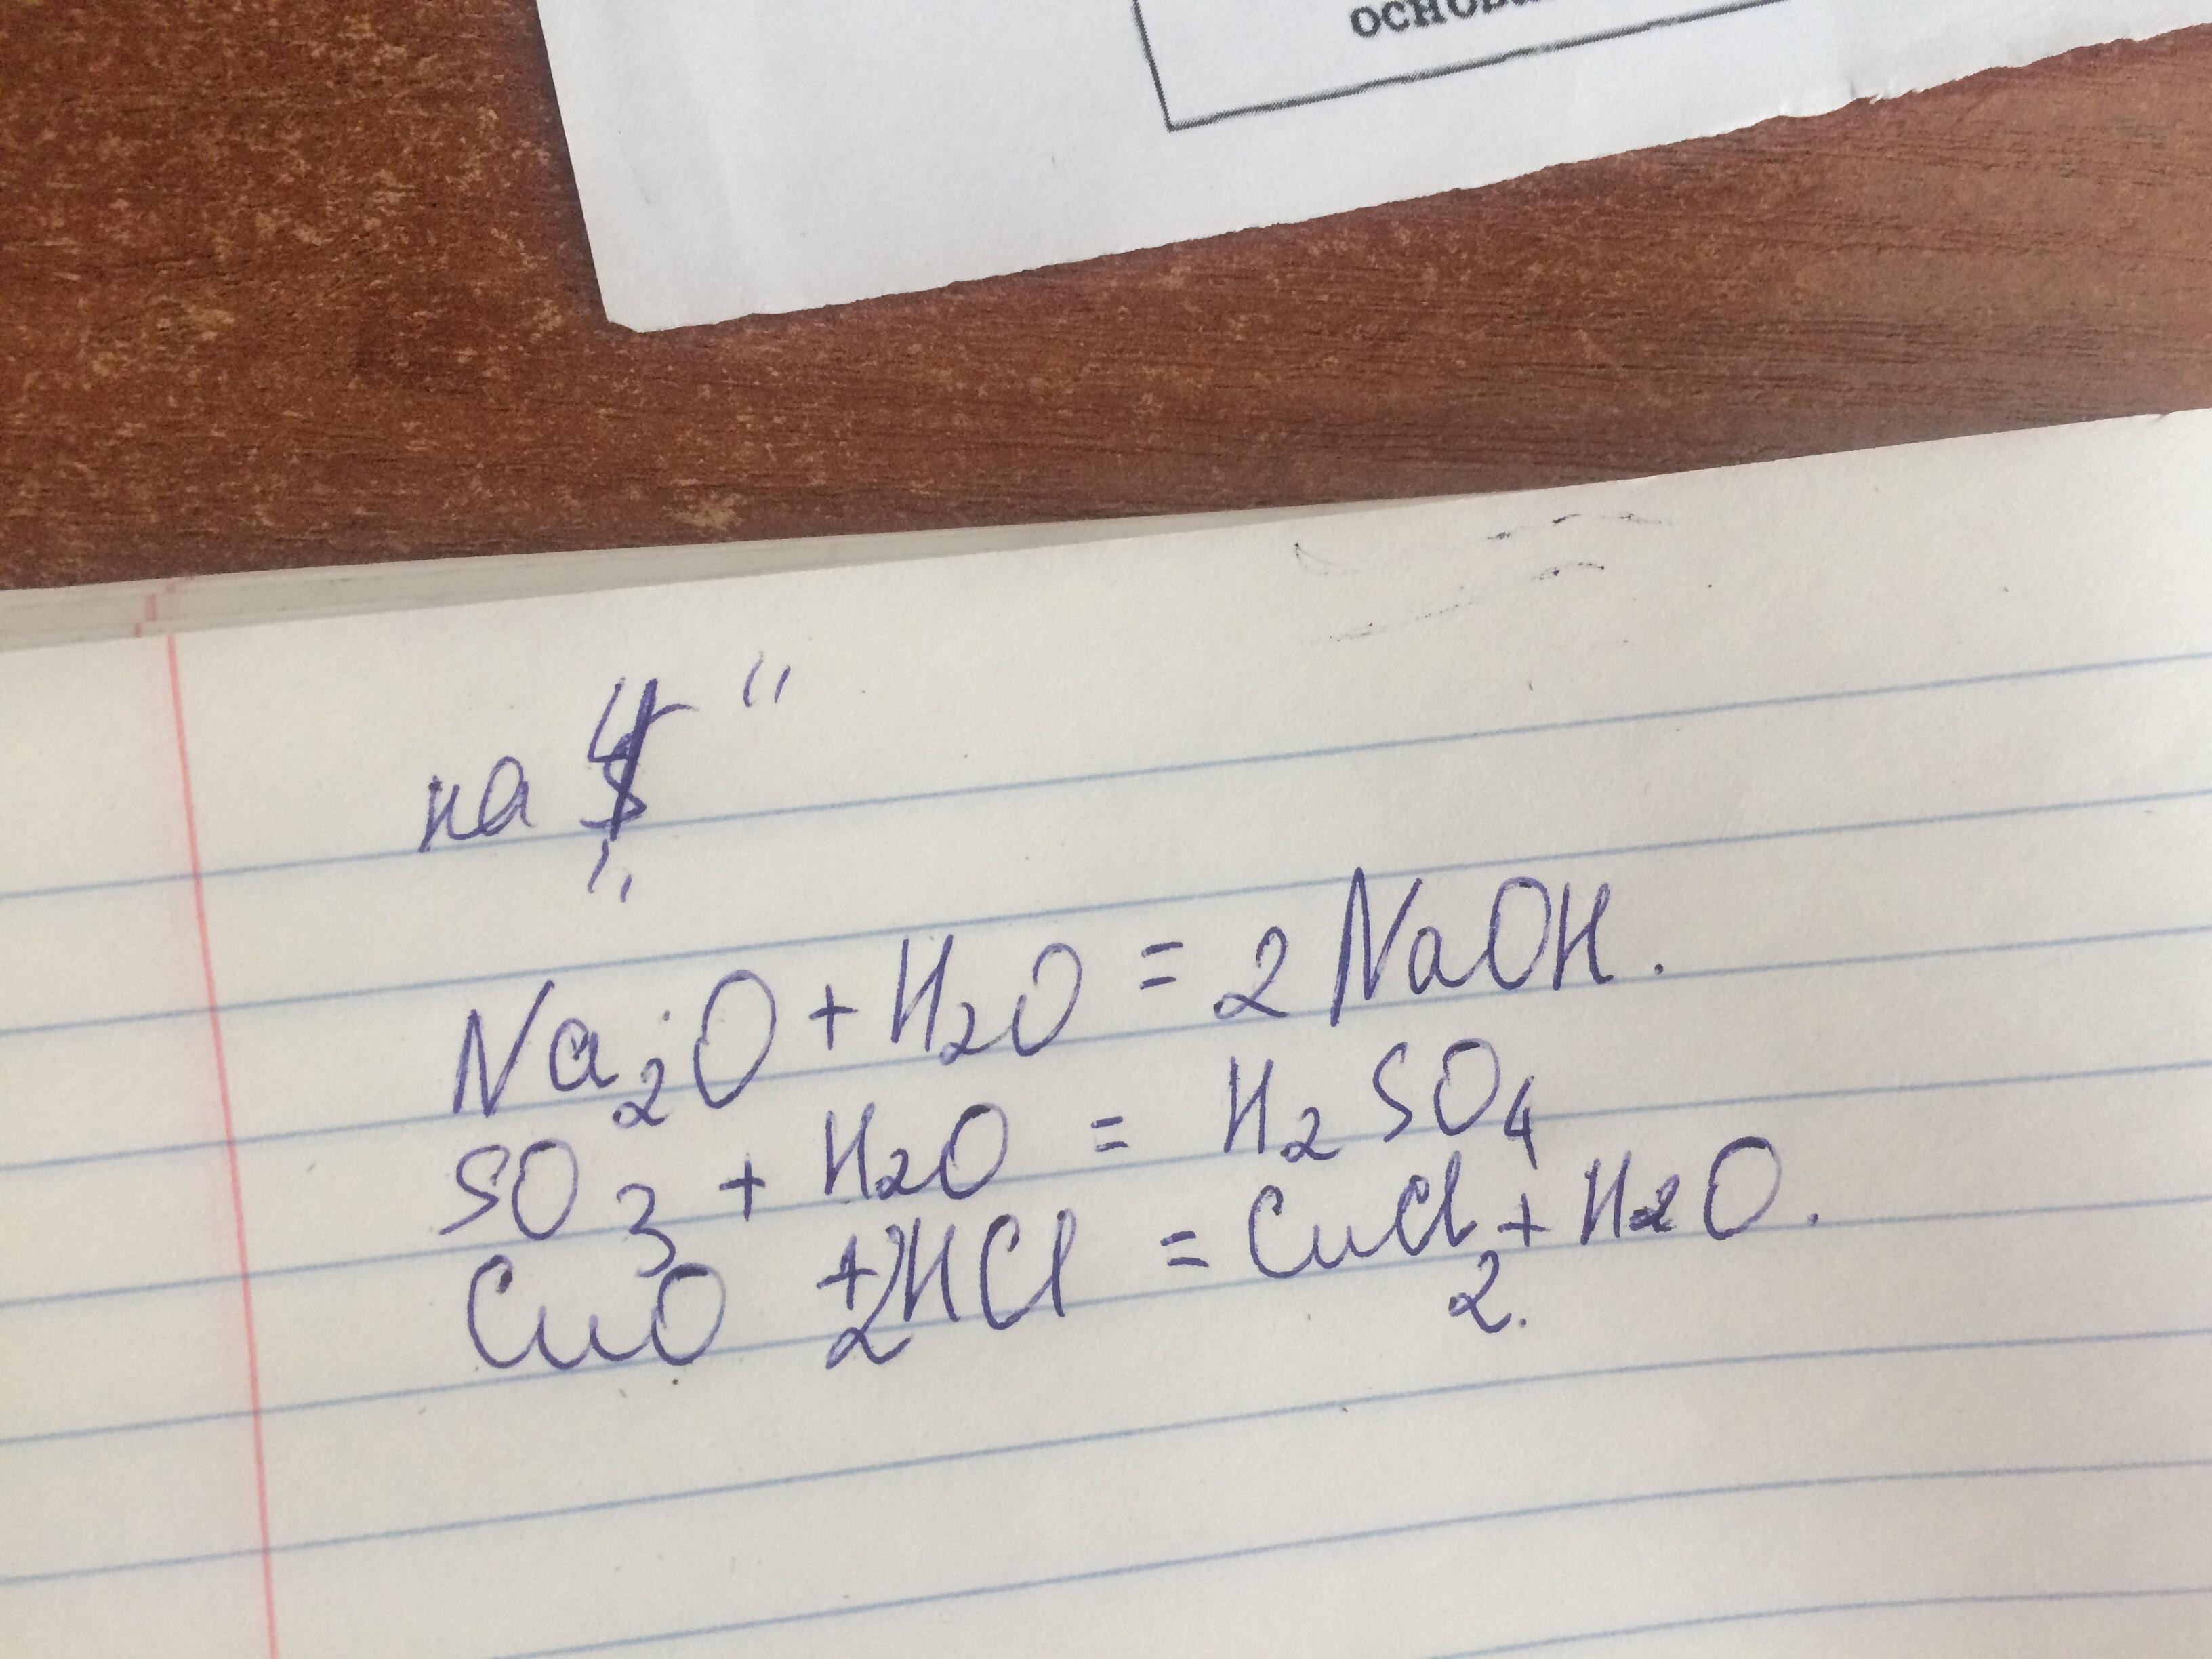 на „4“
Na₂O + H₂O = 2 NaOH.
SO₃ + H₂O = H₂SO₄
CuO + 2HCl = CuCl₂ + H₂O.